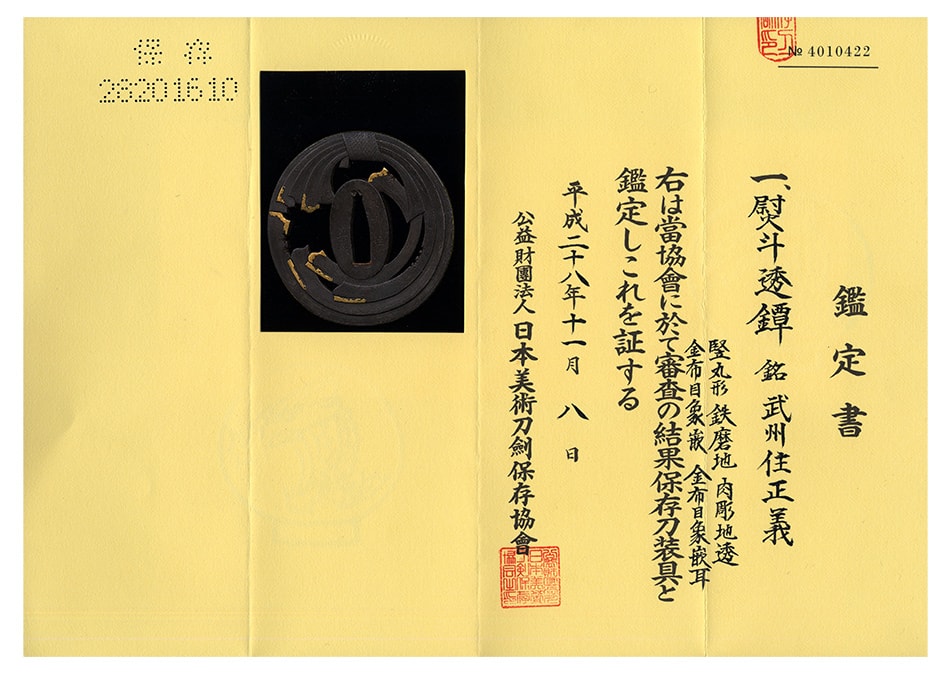 № 4010422
鑑定書
一、熨斗透鐔 銘 武州住正義
竪丸形 鉄磨地 肉彫地透
金布目象嵌 金布目象嵌耳
右は當協會に於て審査の結果保存刀装具と
鑑定しこれを証する
平成二十八年十一月八日
公益財團法人日本美術刀劍保存協會
保存
28201610